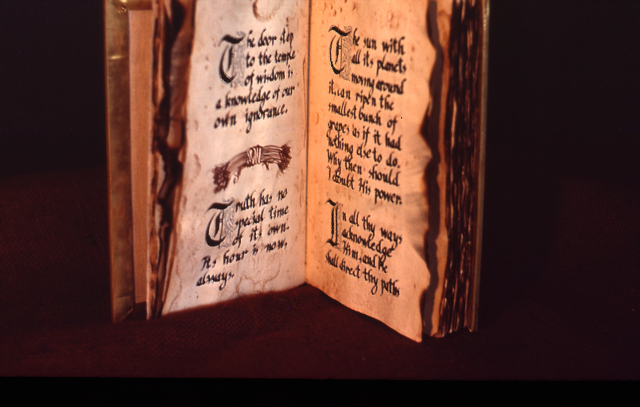 The door step
to the temple
of wisdom is
a knowledge of our
own ignorance.
Truth has no
special time
of its own.
Its hour is now,
always.
The sun with
all its planets
moving around
it, can ripen the
smallest bunch of
grapes as if it had
nothing else to do.
Why then should
I doubt His power.
In all thy ways
acknowledge
Him, and he
shall direct thy paths